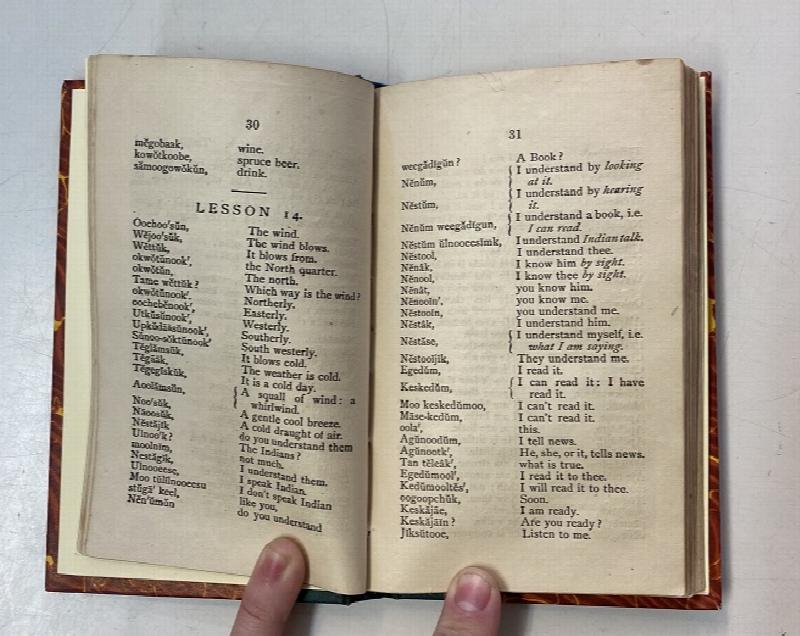 30
mĕgobaak, wine.
kowŏtkoobe, spruce beer.
sămoogowŏkŭn, drink.
LESSON 14.
Oochoo'sŭn, The wind.
Wĕjoo'sŭk, The wind blows.
Wĕttŭk, It blows from.
okwŏtŭnook', the North quarter.
okwŏtŭn, The north.
Tame wĕttŭk? Which way is the wind?
okwŏtŭnook'. Northerly.
oochebĕnook', Easterly.
Utkŭsŭnook', Westerly.
Upkŭdāāsŭnook', Southerly.
Sŭnoo-sŏktŭnook' South westerly.
Tĕgĭamsŭk, It blows cold.
Tĕgŭāk, The weather is cold.
Tĕgĕgĭskŭk, It is a cold day.
Aoolāmsŭn, A squall of wind: a
whirlwind.
Noo'sŭk, A gentle cool breeze.
Nāoosŭk, A cold draught of air.
Nĕstājĭk do you understand them
Ulnoo'k? The Indians?
moolnĭm, not much.
Nestăgĭk, I understand them.
Ulnooeese, I speak Indian.
Moo tŭlŭnooeesu I don't speak Indian
stŭgā' keel, like you,
Nĕn'ŭmŭn do you understand
31
weegădĭgŭn? A Book?
Nĕnŭm, I understand by looking
at it.
Nĕstŭm, I understand by hearing
it.
Nĕnŭm weegădĭgun, I understand a book, i.e.
I can read.
Nĕstŭm ŭlnooeesĭmk, I understand Indian talk.
Nĕstool, I understand thee.
Nĕnăk, I know him by sight.
Nĕnool, I know thee by sight.
Nĕnăt, you know him.
Nĕnooln', you know me.
Nĕstooln, you understand me.
Nĕstăk, I understand him.
Nĕstāse, I understand myself, i.e.
what I am saying.
Nĕstoolĭjĭk, They understand me.
Egedŭm, I read it.
Keskedŭm, I can read it: I have
read it.
Moo keskedŭmoo, I can't read it.
Māse-kedŭm, I can't read it.
oola', this.
Agŭnoodŭm, I tell news.
Agŭnootk', He, she, or it, tells news.
Tan tĕleăk', what is true.
Egedŭmool', I read it to thee.
Kedŭmooltĕs', I will read it to thee.
oogoopchŭk, Soon.
Keskăjāe, I am ready.
Keskăjāĭn? Are you ready?
Jĭksŭtooe, Listen to me.